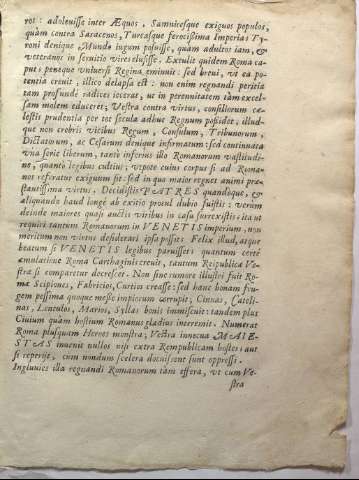 rot: adoleuisse inter Æquos, Samnitesque exiguos populos,
quàm contra Saracenos, Turcasque ferocissima Imperia: Ty-
roni denique Mundo iugum posuisse, quàm adultos iam, &
veteranos in seruitio vires elusisse. Extulit quidem Roma ca-
put; peneque vniuersi Regina eminuit: sed breui, vt ea po-
tentia creuit, illico delapsa est: non enim regnandi peritia
tam profundè radices iecerat, vt in perennitatem tam excel-
sam molem educeret; Vestra contra virtus, consiliorum cæ-
lestis prudentia per tot sæcula adhuc Regnum possidet, illud-
que non crebris vicibus Regum, Consulum, Tribunorum,
Dictatorum, ac Cæsarum denique infirmatum: sed continuata
vitæ sorte liberum, tantò infensus illo Romanorum vastitudi-
ne, quantò legibus cultius; vtpote cuius corpus si ad Roma-
nos referatur exiguum sit: sed in quo maior regnet animi præ-
stantissima virtus. Decidistis PATRES quandoque, &
aliquando haud longè ab exitio procul dubio fuistis: verùm
deinde maiores quàm auctis viribus in casu surrexistis: ita vt
requiri tantum Romanorum in VENETIS imperium, non
meritum non virtus desiderari ipsa possit: Felix illud, atque
beatum si VENETIS legibus paruisset; quantum certè
æmulatione Roma Carthaginis creuit, tantum Reipublicæ Ve-
stræ si comparetur decrescet. Non sine rumore illustri fuit Ro-
mæ Scipiones, Fabricios, Curtios creasse: sed hanc bonam fru-
gem pessima quoque messe impiorum corrupit; Cinnas, Cateli-
nas, Lentulos, Marios, Syllas bonis immiscuit: tandem plus
Ciuium quàm hostium Romanus gladius interemit. Numerat
Roma plusquam Heroes monstra; Vestra innocua MAIE-
STAS inuenit nullos nisi extra Rempublicam hostes: aut
si reperijt, cum nondum scelera docuissent sunt oppressi.
Ingluuies illa regnandi Romanorum tam effera, vt cum Ve-
stra